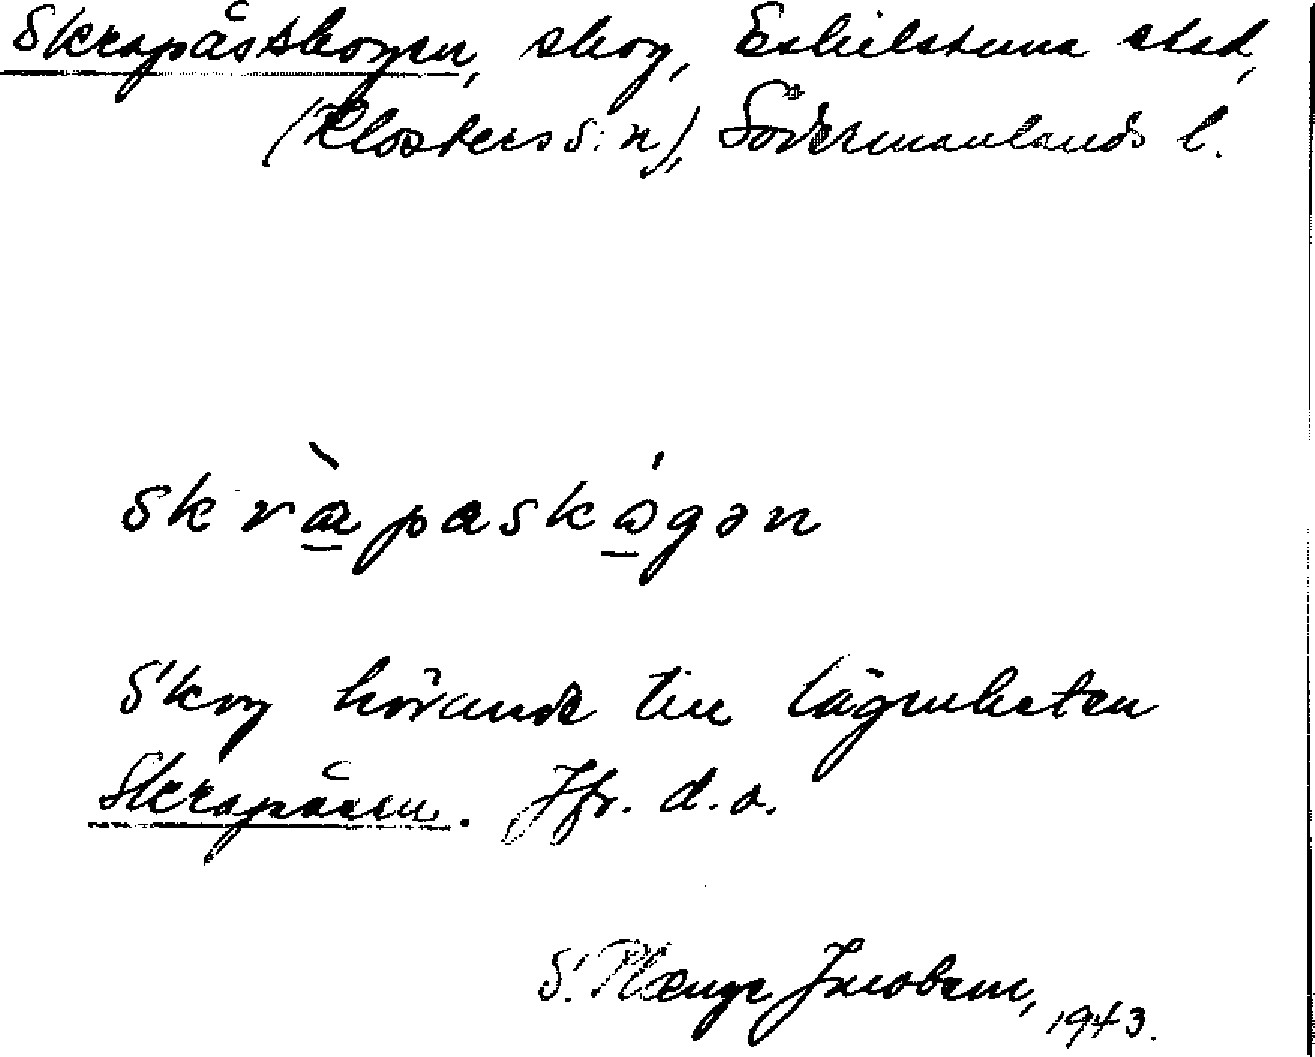 Skrapåsskogen, skog, Eskilstuna stad,
(Klosters s:n), Södermanlands l.
skræ̀paskógən
Skog hörande till lägenheten
Skrapåsen. Jfr. d.o.
S. Plænge Jacobson, 1943.